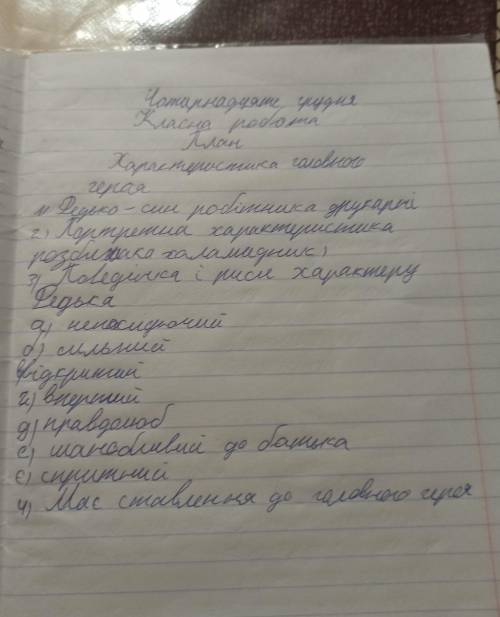 Чотирнадцяте грудня
Класна робота
План
Характеристика головного
героя
1) Федько - син робітника друкарні
2) Портретна характеристика
розбишака халамидник)
3) Поведінка і риси характеру
Федька
а)
б) сильний
в) відкритий
г) впертий
д) правдолюб
е) шанобливий до батька
є) спритний
4) Моє ставлення до головного героя